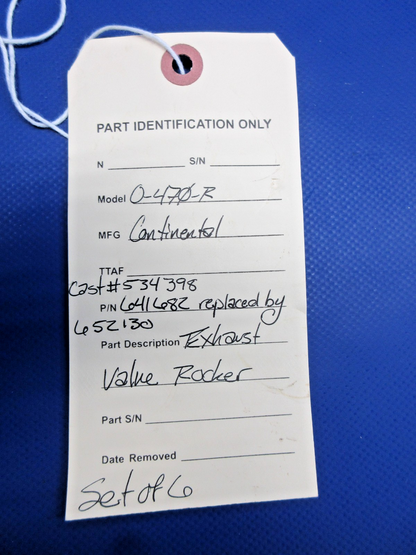 PART IDENTIFICATION ONLY
N S/N
Model O-470-R
MFG Continental
TTAF
Cast# 534398
P/N 641682 replaced by
652130
Part Description Exhaust
Valve Rocker
Part S/N
Date Removed
Set of 6